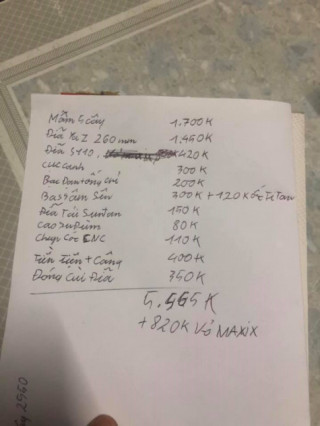 Mâm 5 cây 1.700K
Đĩa YaZ 260mm 1.450K
Đĩa S110, 420K
Cục canh 700K
200K
Bas 3 tăm Sên 300K + 120K ốc Titan
Đĩa Tải Suntan 150K
Cao su Đùm 80K
Chụp Cốc CNC 110K
Tiền Tiện + Công 400K
Đóng Cùi Đĩa 750K
5.565K
+820K Vỏ MAXIX
2960